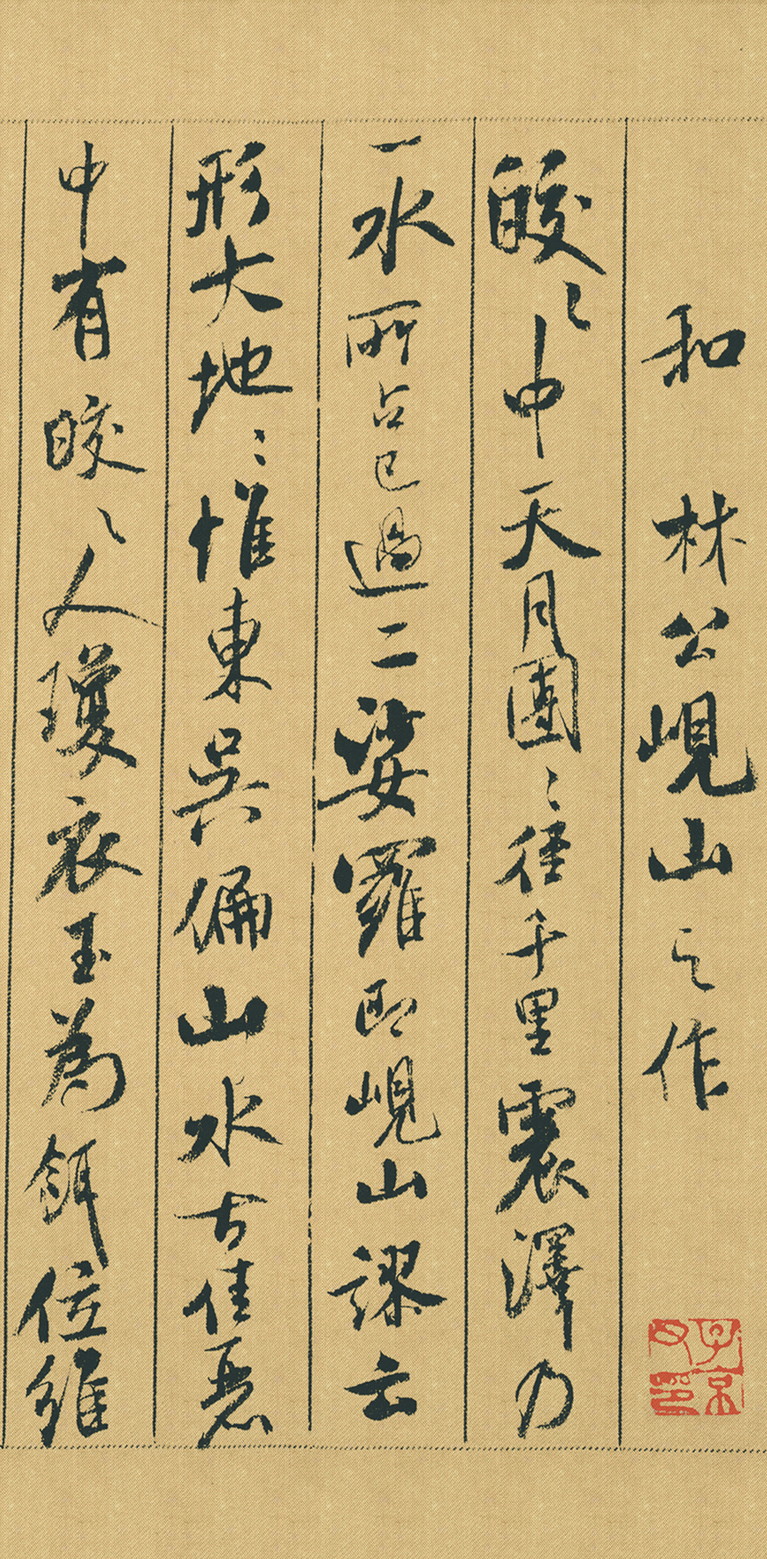 和林公峴山之作
皎〻中天月團〻徑千里震澤乃
一水所占已過二娑羅即峴山謬云
形大地〻惟東吳偏山水古佳麗
中有皎〻人瓊衣玉為餌位維
子京父印